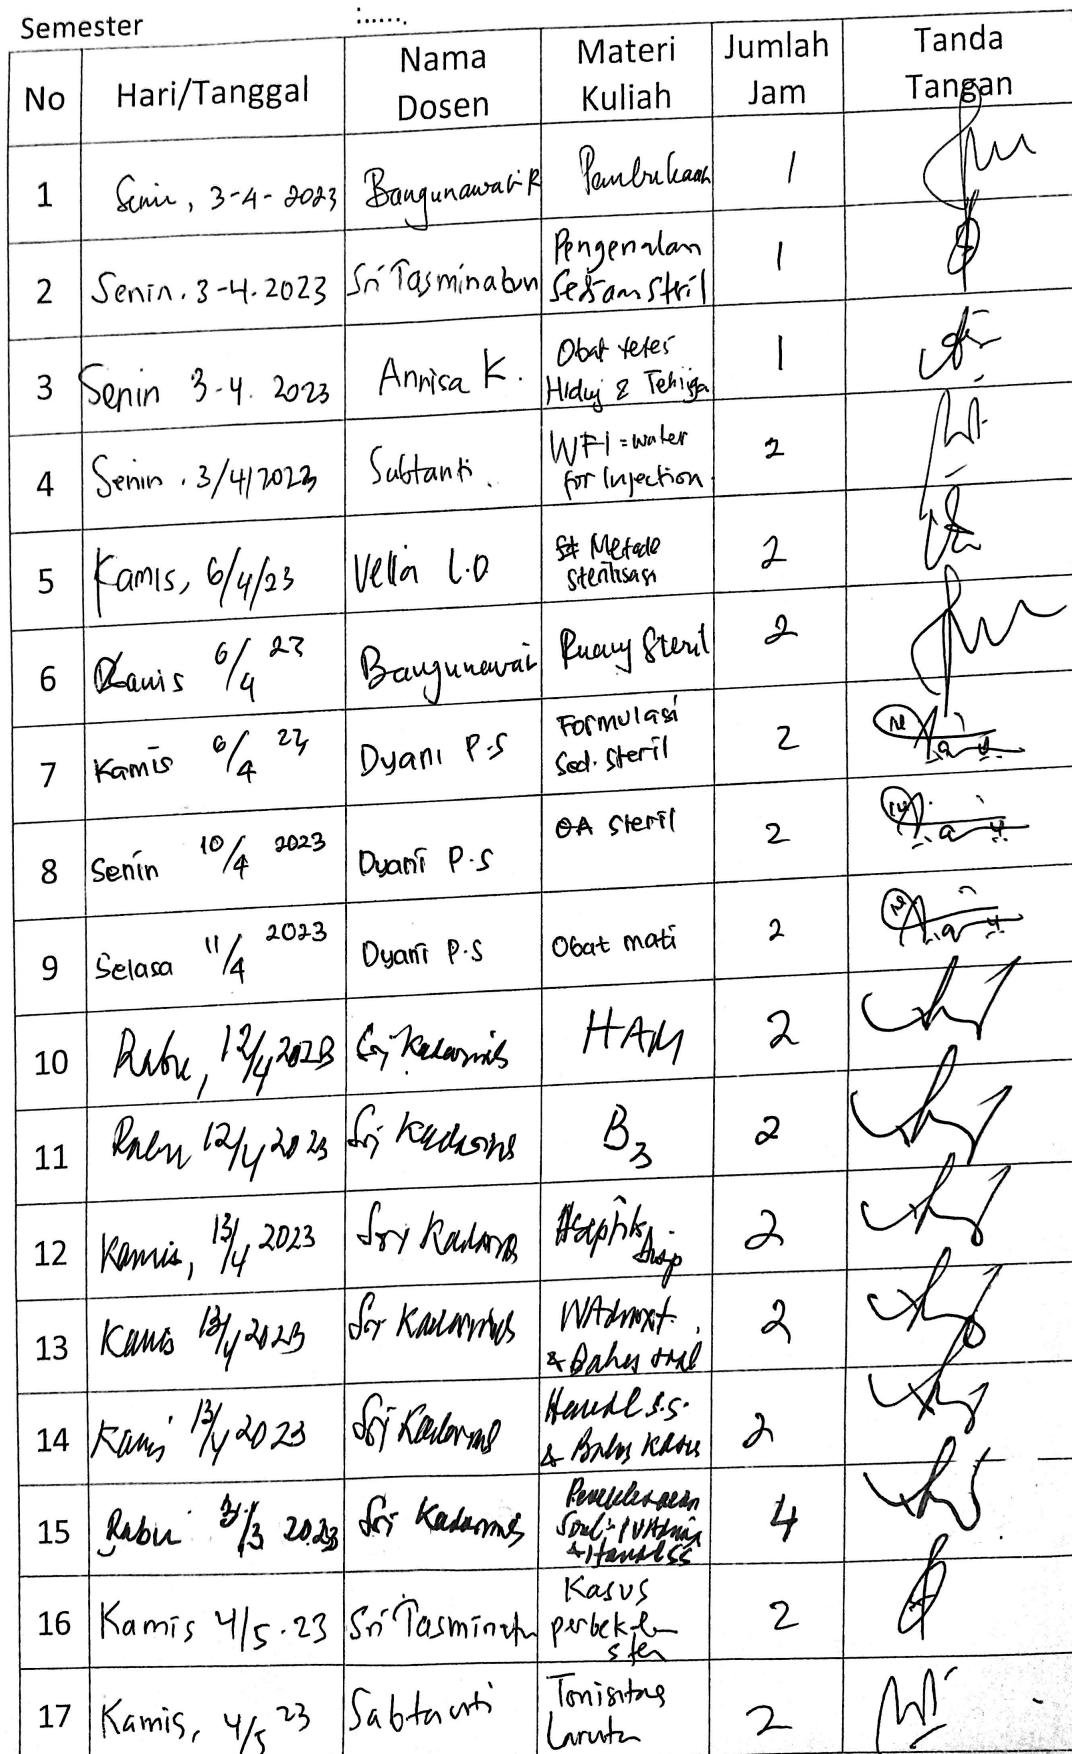 Semester :......
No Hari/Tanggal Nama Dosen Materi Kuliah Jumlah Jam Tanda Tangan
1 Senin, 3-4-2023 Bangunawati R Pembukaan 1
2 Senin. 3-4.2023 Sri Tasminatun Pengenalan Sediaan Steril 1
3 Senin 3-4. 2023 Annisa K. Obat tetes Hidung & Telinga 1
4 Senin. 3/4/2023 Sabtanti. WFI = water for Injection 2
5 Kamis, 6/4/23 Vella L.D Metode Sterilisasi 2
6 Kamis 6/4 23 Bangunawati Ruang Steril 2
7 Kamis 6/4 23 Dyani P.S Formulasi Sed. Steril 2
8 Senin 10/4 2023 Dyani P.S OA Steril 2
9 Selasa 11/4 2023 Dyani P.S Obat mati 2
10 Rabu, 12/4 2023 Sri Kadarinis HAM 2
11 Rabu 12/4 2023 Sri Kadarinis B3 2
12 Kamis, 13/4 2023 Sri Kadarinis Aseptik 2
13 Kamis 13/4 2023 Sri Kadarinis & Bahas 2
14 Kamis 13/4 2023 Sri Kadarinis & Bahas Kasus 2
15 Rabu 2023 Sri Kadarinis 4
16 Kamis 4/5.23 Sri Tasminatun Kasus 2
17 Kamis, 4/5 23 Sabtanti Tonisitas Larutan 2